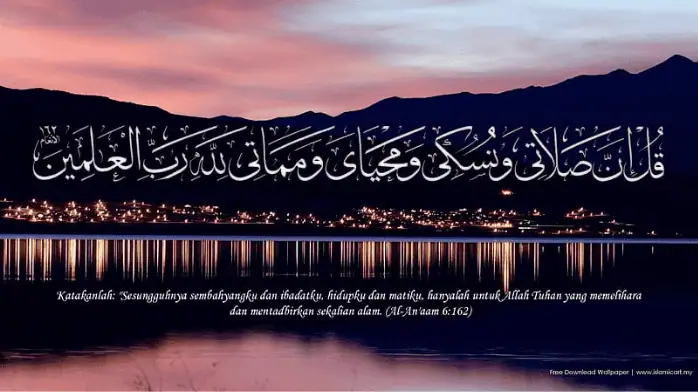 قُلْ إِنَّ صَلَاتِي وَنُسُكِي وَمَحْيَايَ وَمَمَاتِي لِلَّهِ رَبِّ الْعَالَمِينَ
Katakanlah: "Sesungguhnya sembahyangku dan ibadatku, hidupku dan matiku, hanyalah untuk Allah Tuhan yang memelihara
dan mentadbirkan sekalian alam. (Al-An'aam 6:162)
Free Download Wallpaper | www.islamicart.my